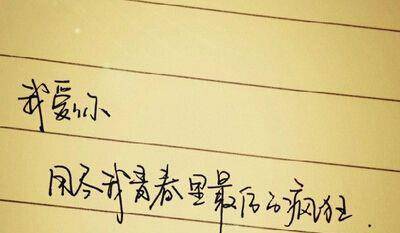 我爱你
用尽我青春里最后的疯狂.